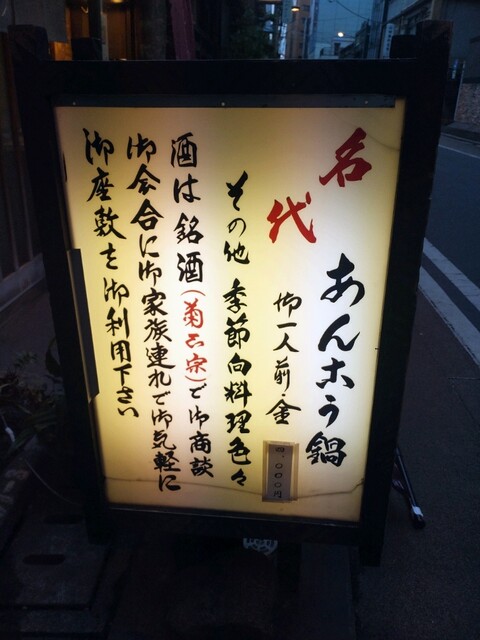 名代
あんこう鍋
御一人前金
四、〇〇〇円
その他季節向料理色々
酒は銘酒(菊正宗)で御商談
御会合に御家族連れで御気軽に
御座敷を御利用下さい